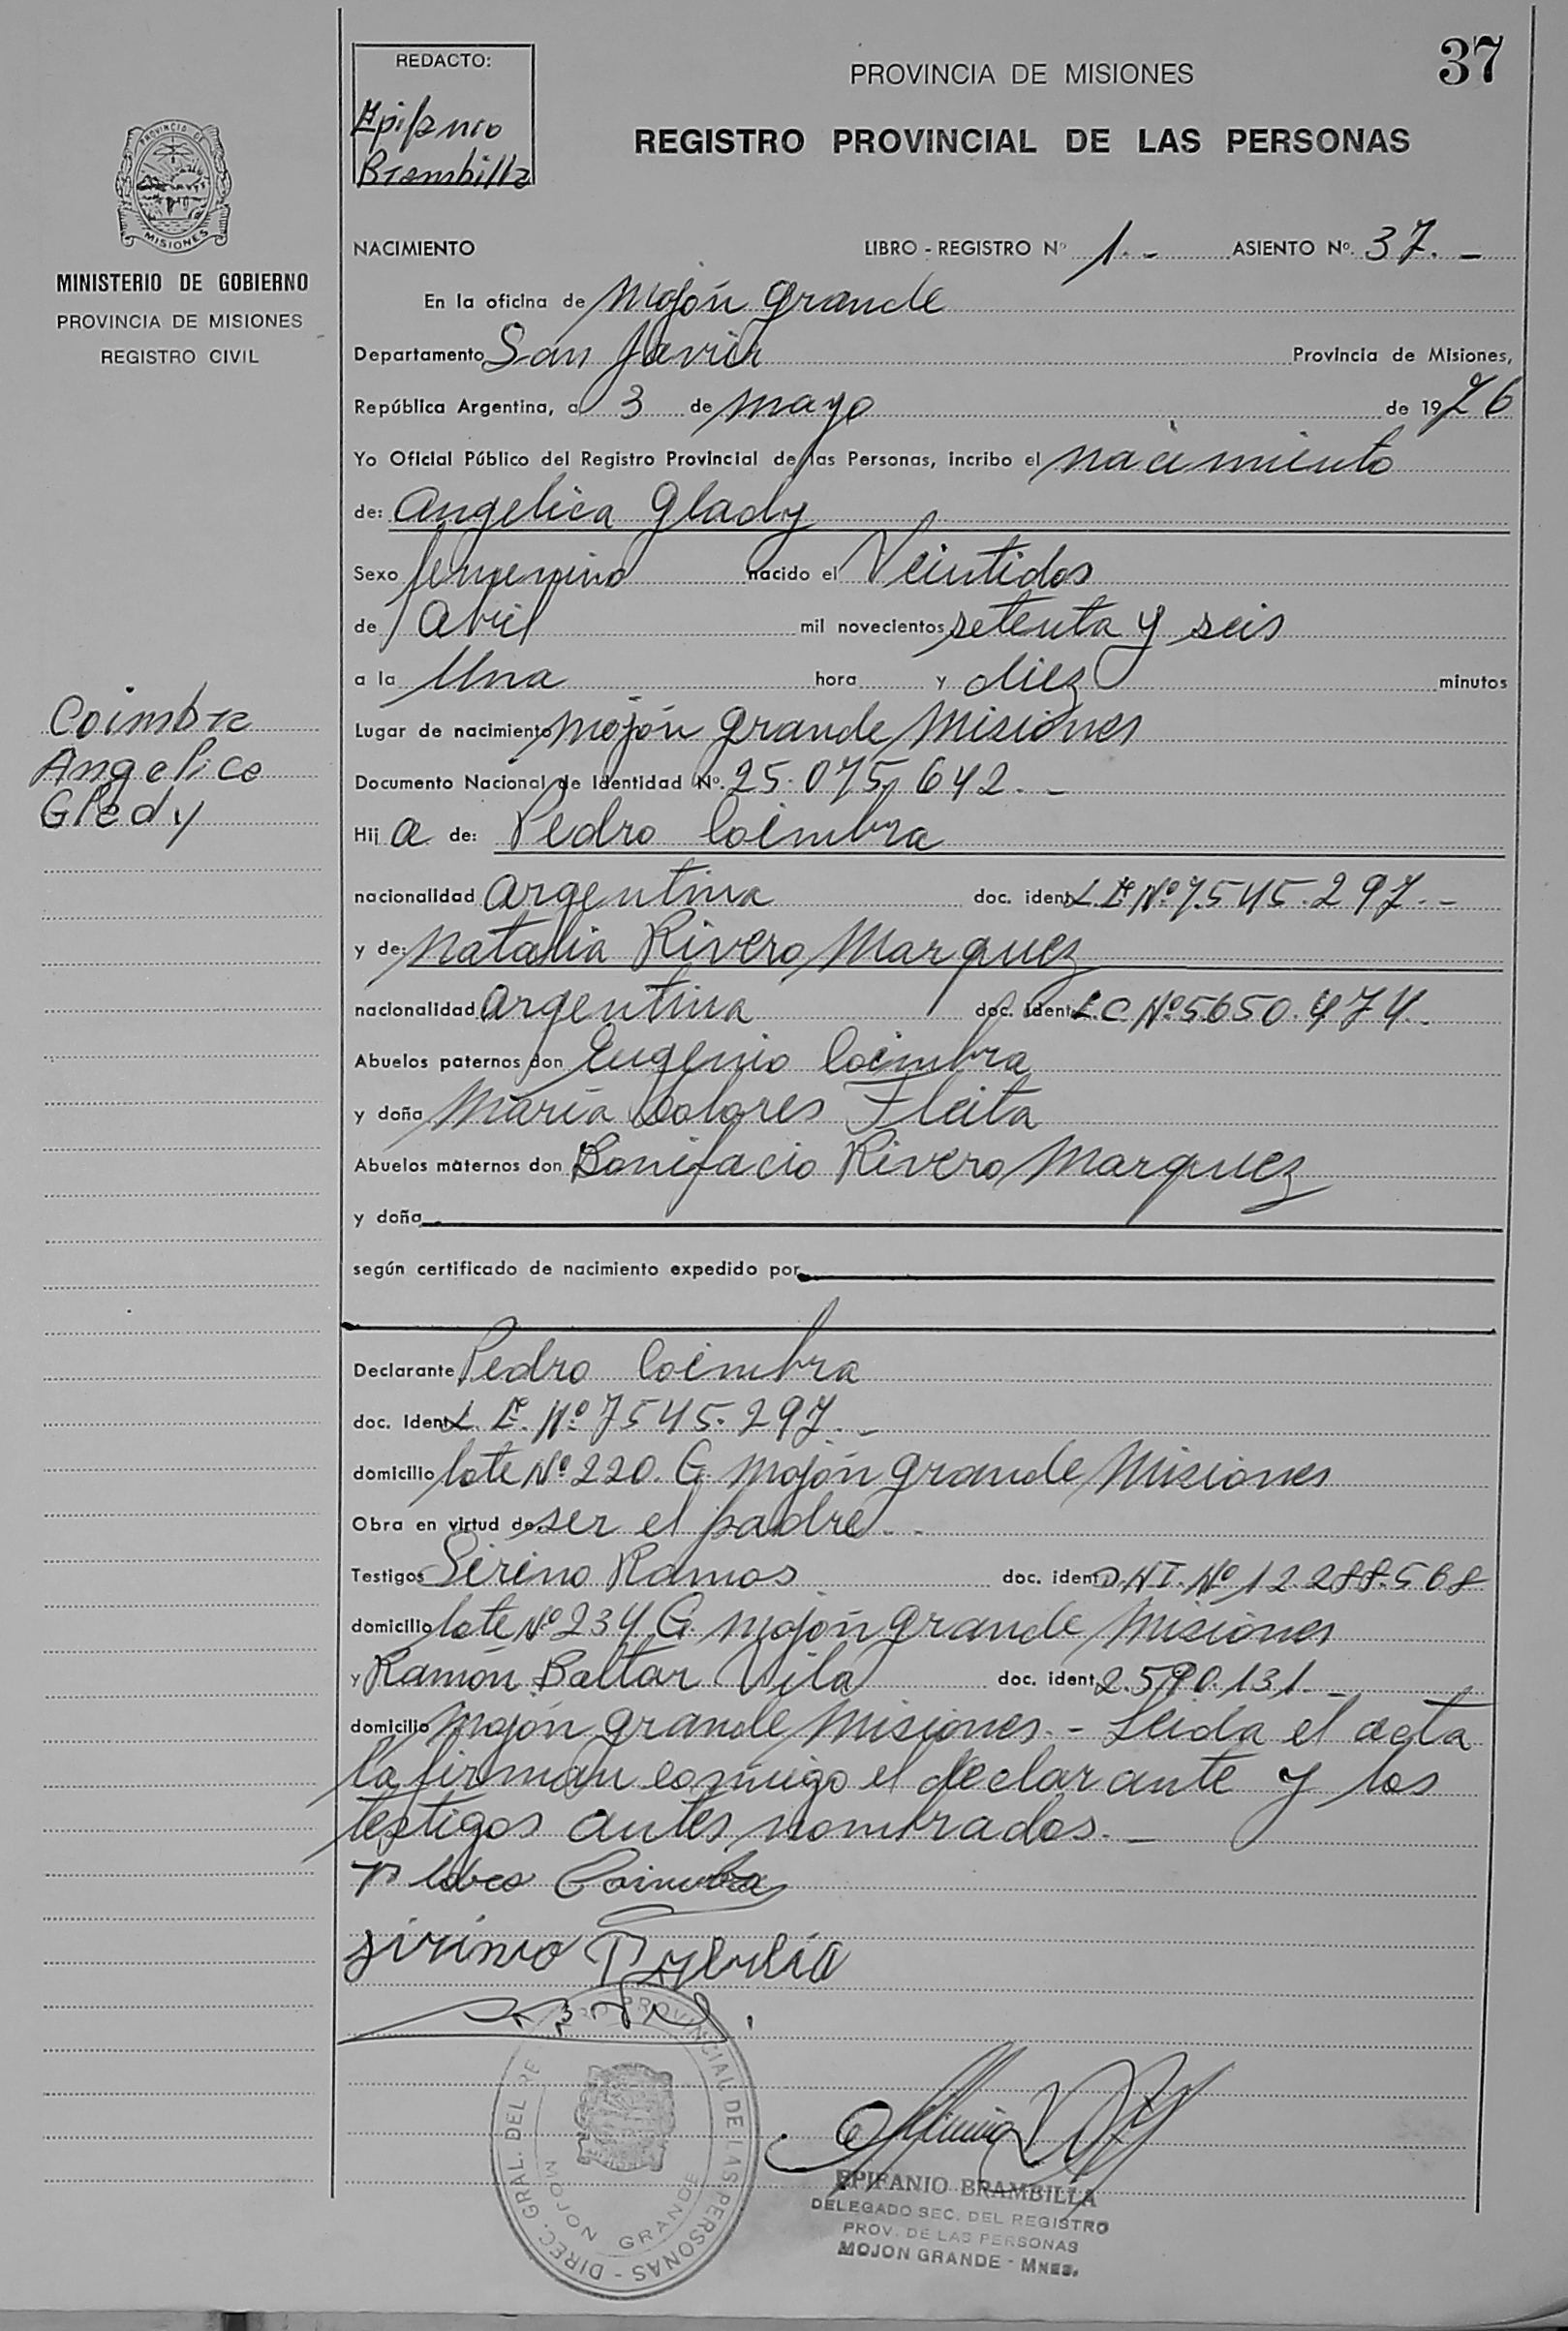 37
REDACTO:
Epifanio
Brambilla
PROVINCIA DE MISIONES
REGISTRO PROVINCIAL DE LAS PERSONAS
PROVINCIA DE
MISIONES
MINISTERIO DE GOBIERNO
PROVINCIA DE MISIONES
REGISTRO CIVIL
NACIMIENTO LIBRO - REGISTRO Nº 1.- ASIENTO Nº. 37.-
En la oficina de Mojón Grande
Departamento San Javier Provincia de Misiones,
República Argentina, a 3 de mayo de 1976
Yo Oficial Público del Registro Provincial de las Personas, incribo el nacimiento
de: Angelica Glady
Sexo femenino nacido el Veintidos
de Abril mil novecientos setenta y seis
a la Una hora y diez minutos
Coimbra
Angelica
Glady
Lugar de nacimiento Mojón Grande Misiones
Documento Nacional de Identidad Nº. 25.075.642.-
Hij a de: Pedro Coimbra
nacionalidad argentina doc. ident. L.E. Nº 7.545.297.-
y de: Natalia Rivero Marquez
nacionalidad argentina doc. ident. L.C. Nº 5.650.474.-
Abuelos paternos don Eugenio Coimbra
y doña María Dolores Fleita
Abuelos maternos don Bonifacio Rivero Marquez
y doña
según certificado de nacimiento expedido por
Declarante Pedro Coimbra
doc. Ident. L.E. Nº 7545.297.-
domicilio lote Nº 220. G. Mojón Grande Misiones
Obra en virtud de ser el padre.-
Testigos Sirino Ramos doc. ident. DNI. Nº 12.288.568
domicilio lote Nº 234 G. Mojón Grande Misiones
y Ramón Baltar Vila doc. ident. 2.590.131.-
domicilio Mojón Grande Misiones.- Leida el acta
la firman conmigo el declarante y los
testigos antes nombrados.-
Coimbra
sirino
DIREC. GRAL. DEL REGISTRO PROVINCIAL DE LAS PERSONAS -
MOJON GRANDE
EPIFANIO BRAMBILLA
DELEGADO SEC. DEL REGISTRO
PROV. DE LAS PERSONAS
MOJON GRANDE - MNES.